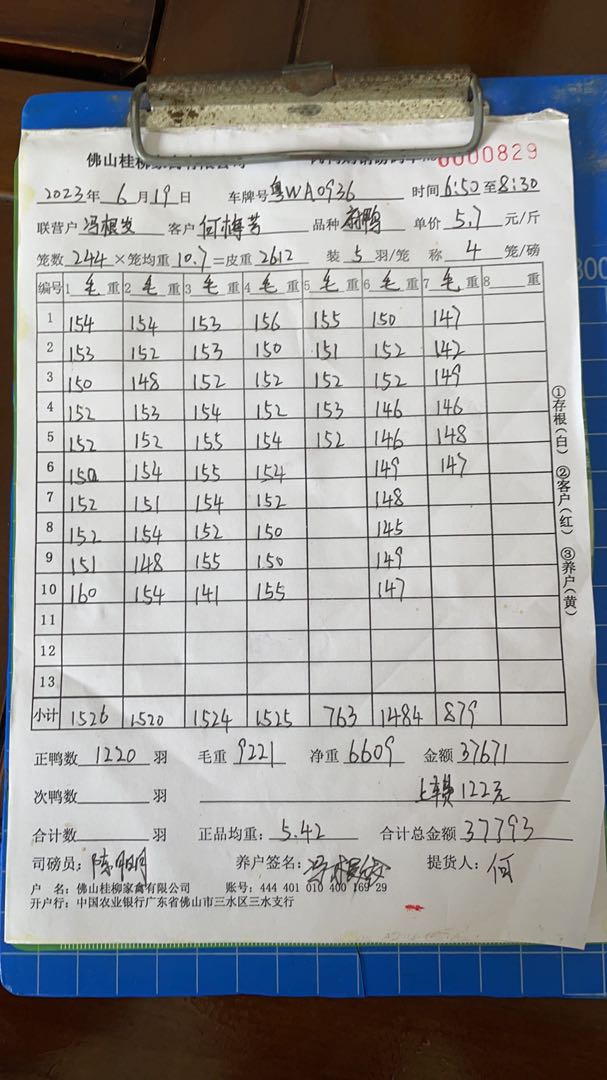 佛山桂柳家禽有限公司 0000829
2023年 6 月 19 日 车牌号 粤WA0936 时间 6:50 至 8:30
联营户 冯根发 客户 何梅芳 品种 麻鸭 单价 5.7 元/斤
笼数 244 ×笼均重 10.7 =皮重 2612 装 5 羽/笼 称 4 笼/磅
编号 1 毛 重 2 毛 重 3 毛 重 4 毛 重 5 重 6 毛 重 7 毛 重 8 重
1 154 154 153 156 155 150 147
2 153 152 153 150 151 152 142
3 150 148 152 152 152 152 149
4 152 153 154 152 153 146 146
5 152 152 155 154 152 146 148
6 150 154 155 154 149 147
7 152 151 154 152 148
8 152 154 152 150 145
9 151 148 155 150 149
10 160 154 141 155 147
11
12
13
小计 1526 1520 1524 1525 763 1484 879
①存根(白) ②客户(红) ③养户(黄)
正鸭数 1220 羽 毛重 9221 净重 6609 金额 37671
次鸭数 羽 上车费 122元
合计数 羽 正品均重: 5.42 合计总金额 37793
司磅员: 陈明月 养户签名: 冯根发 提货人: 何
户 名: 佛山桂柳家禽有限公司 账号: 444 401 010 400 169 29
开户行: 中国农业银行广东省佛山市三水区三水支行